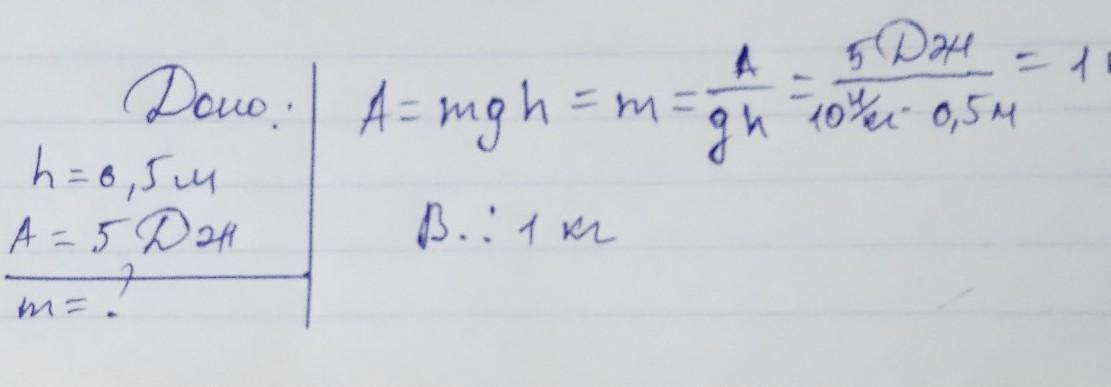 Дано:
h = 0,5 м
A = 5 Дж
m = ?
A = mgh = m = A/gh = 5 Дж/10 Н/кг · 0,5 м = 1
В.: 1 кг